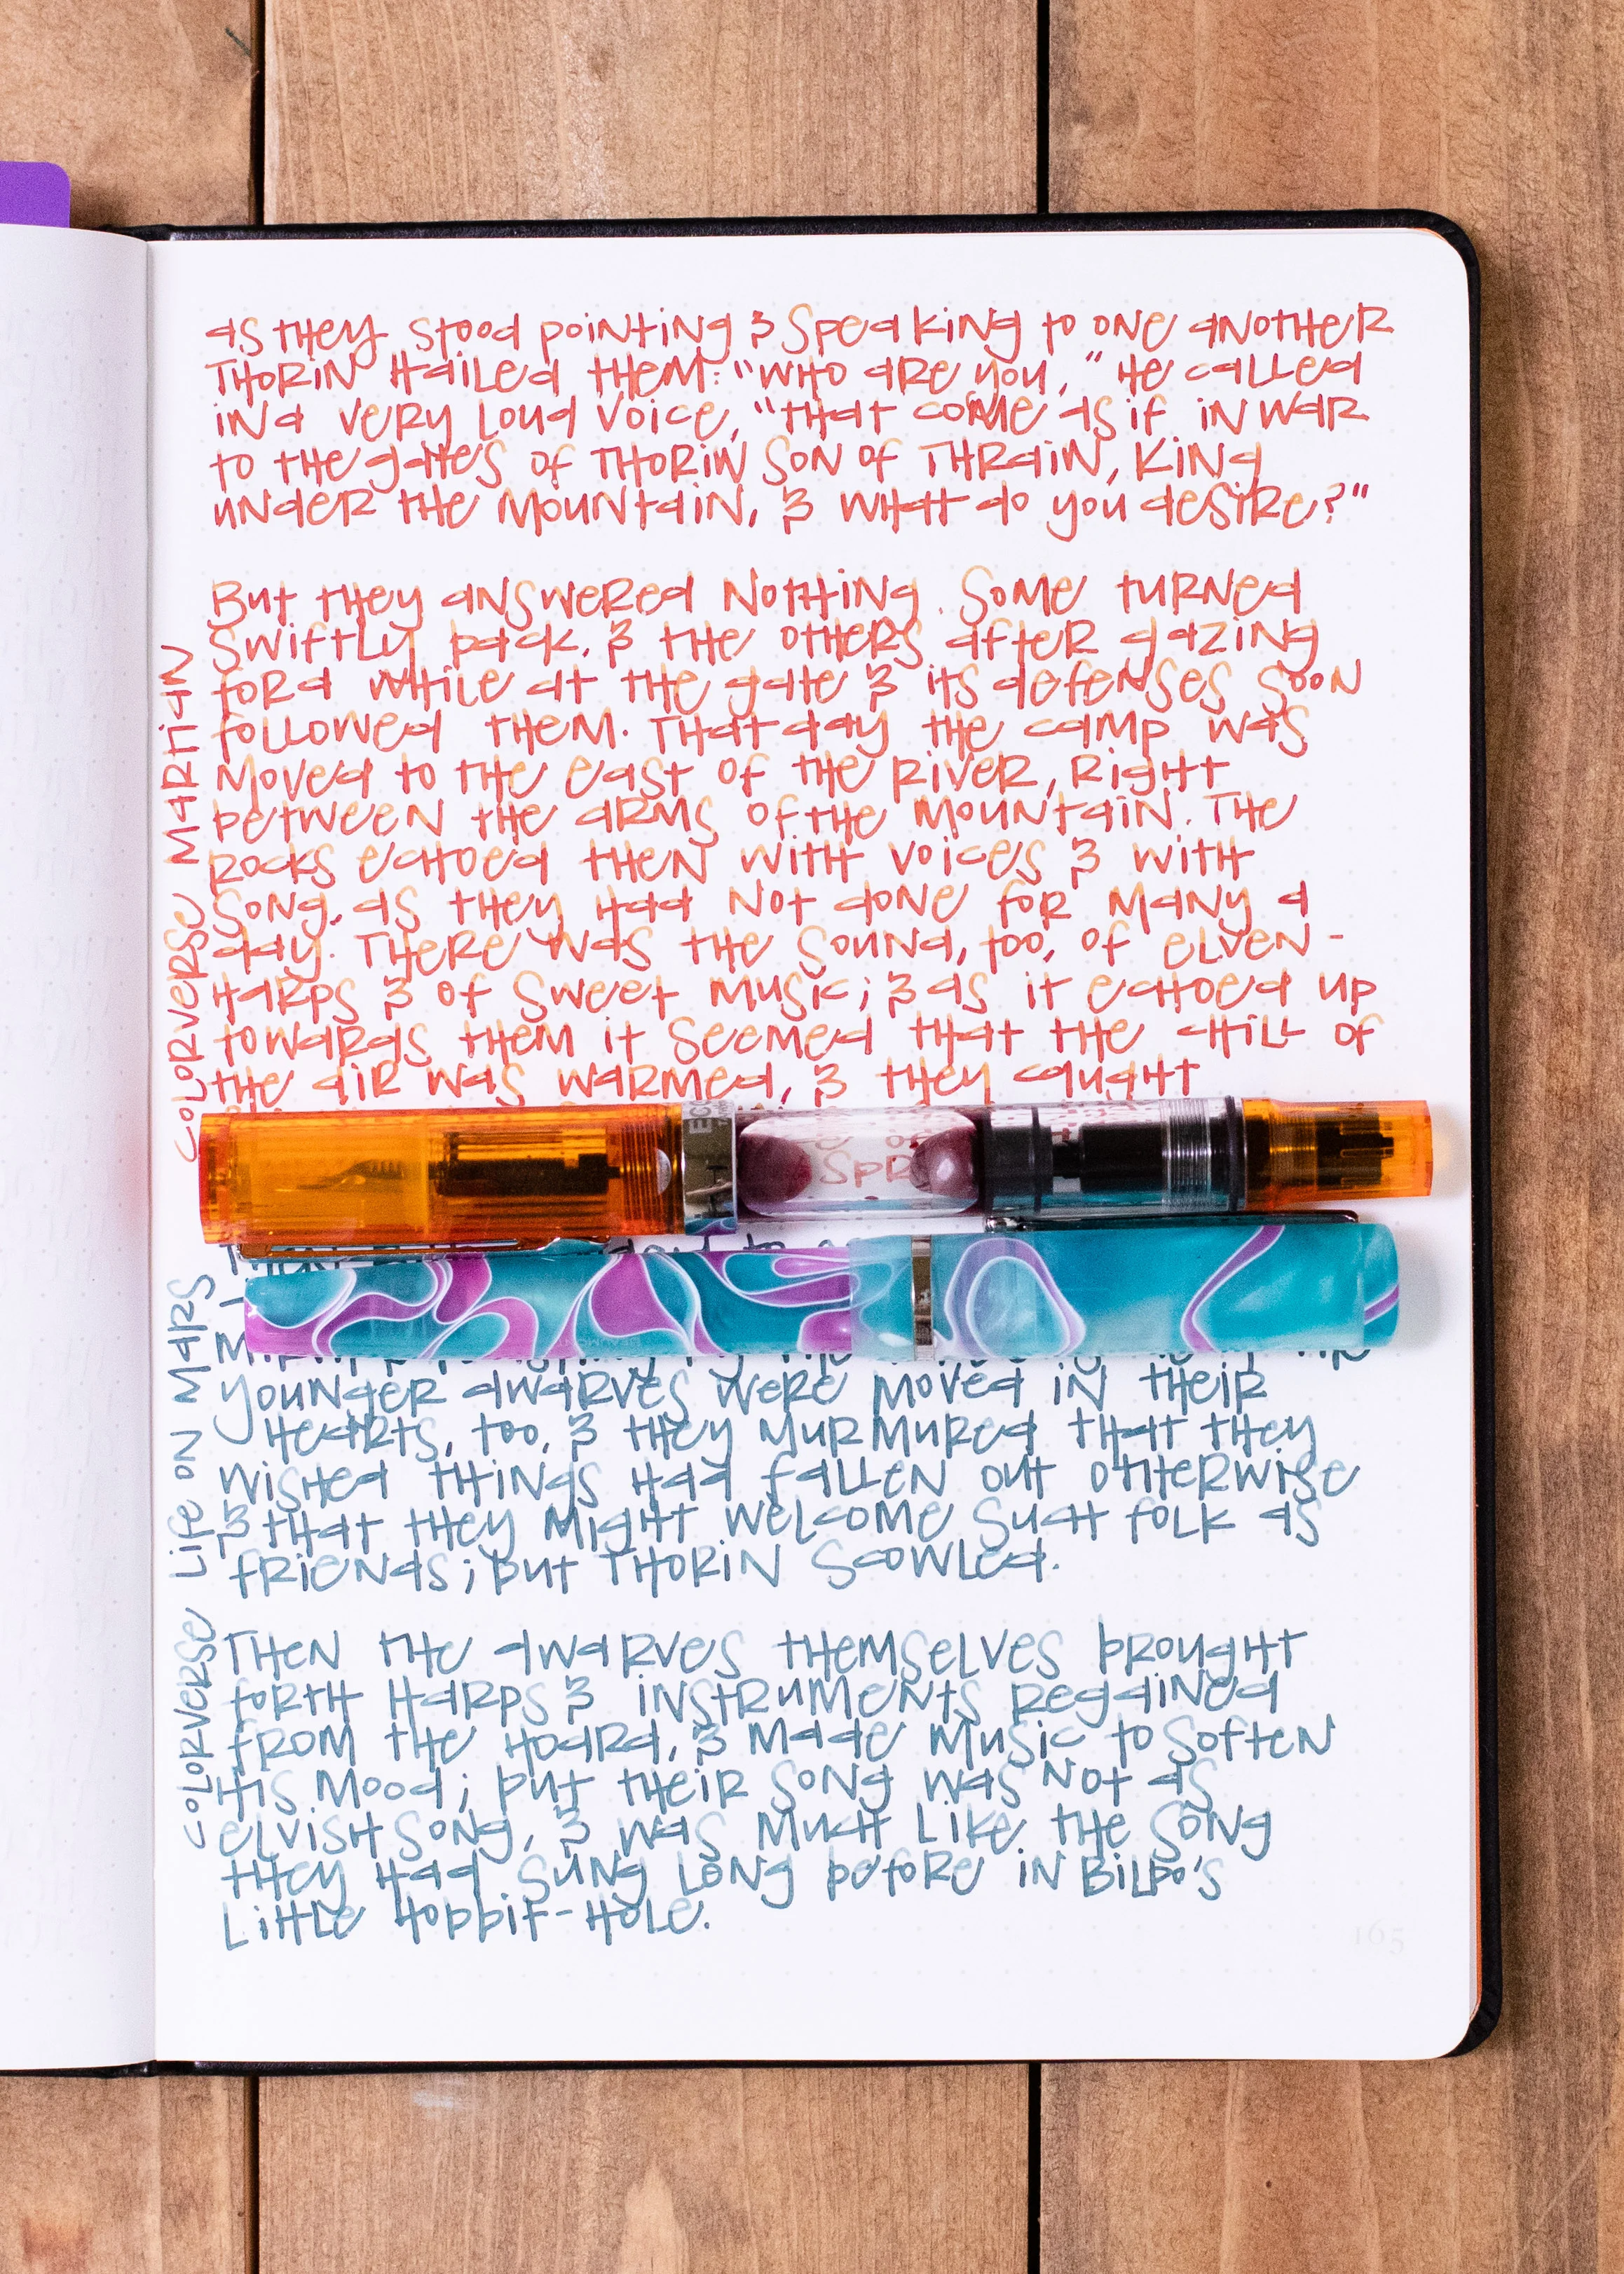 as they stood pointing & speaking to one another
Thorin hailed them: "Who are you," he called
in a very loud voice, "that come as if in war
to the gates of Thorin son of Thrain, King
under the Mountain, & what do you desire?"
But they answered nothing. Some turned
swiftly back, & the others after gazing
for a while at the gate & its defenses soon
followed them. That day the camp was
moved to the east of the river, right
between the arms of the mountain. The
rocks echoed then with voices & with
song, as they had not done for many a
day. There was the sound, too, of elven-
harps & of sweet music; & as it echoed up
towards them it seemed that the chill of
the air was warmed, & they caught
Colorverse Martian
EC
Spr
younger dwarves were moved in their
hearts, too, & they murmured that they
wished things had fallen out otherwise
& that they might welcome such folk as
friends; but Thorin scowled.
Then the dwarves themselves brought
forth harps & instruments regained
from the hoard, & made music to soften
his mood; but their song was not as
elvish song, & was much like the song
they had sung long before in Bilbo's
little hobbit-hole.
Colorverse Life on Mars
165